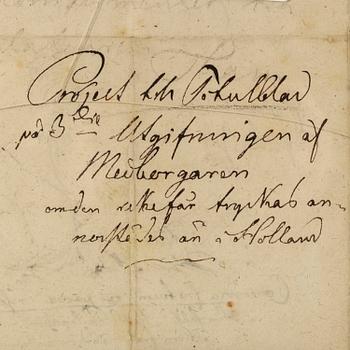 Project till Titulblad
på 3die Utgifningen af
Medborgaren
om den icke får tryckas an-
norstädes än i Holland